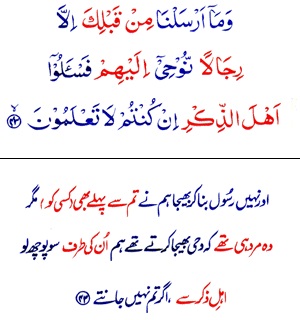 وَمَآ اَرْسَلْنَا مِنْ قَبْلِكَ اِلَّا
رِجَالًا نُّوْحِىْٓ اِلَيْهِمْ فَسْـَٔلُوْٓا
اَهْلَ الذِّكْرِ اِنْ كُنْتُمْ لَا تَعْلَمُوْنَ ﴿۴۳﴾
اور نہیں رسُول بنا کر بھیجا ہم نے تم سے پہلے بھی (کسی کو) مگر
وہ مرد ہی تھے کہ وحی بھیجا کرتے تھے ہم اُن کی طرف سو پوچھ لو
اہلِ ذکر سے ، اگر تم نہیں جانتے ﴿۴۳﴾